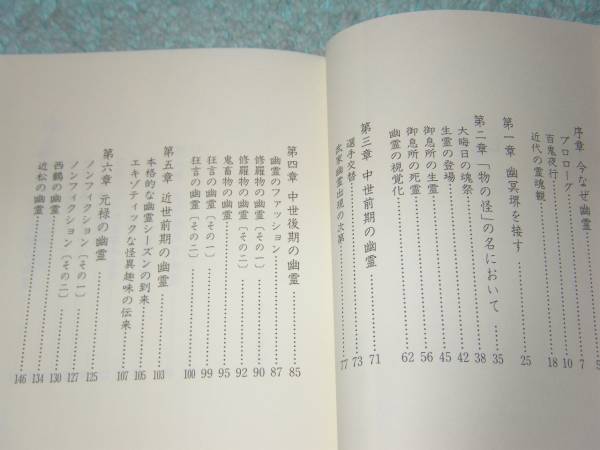 序章 今なぜ幽霊……5
プロローグ……7
百鬼夜行……10
近代の霊魂観……18
第一章 幽冥堺を接す……25
第二章 「物の怪」の名において……35
大晦日の魂祭……38
生霊の登場……42
御息所の生霊……45
御息所の死霊……56
幽霊の視覚化……62
第三章 中世前期の幽霊……71
選手交替……73
武家幽霊出現の次第……77
第四章 中世後期の幽霊……85
幽霊のファッション……87
修羅物の幽霊〔その一〕……90
修羅物の幽霊〔その二〕……92
鬼畜物の幽霊……95
狂言の幽霊〔その一〕……99
狂言の幽霊〔その二〕……100
第五章 近世前期の幽霊……103
本格的な幽霊シーズンの到来……105
エキゾティックな怪異趣味の伝来……107
第六章 元禄の幽霊……125
ノンフィクション〔その一〕……127
ノンフィクション〔その二〕……130
西鶴の幽霊……134
近松の幽霊……146